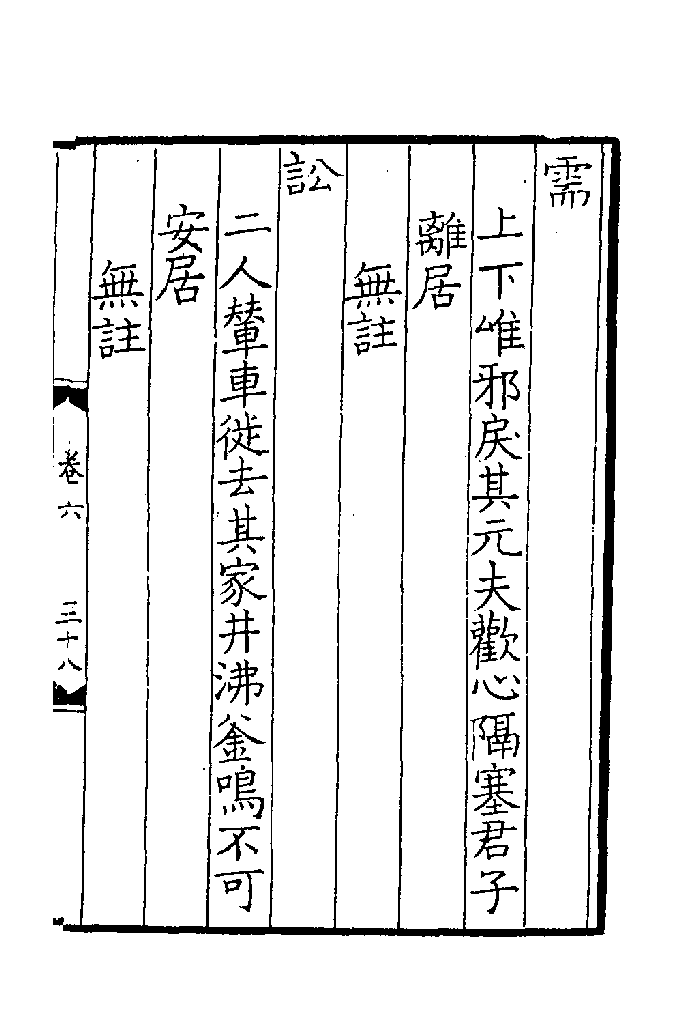 需
上下唯邪戾其元夫歡心隔塞君子
離居
無註
訟
二人輦車徙去其家井沸釜鳴不可
安居
無註
卷六
三十八